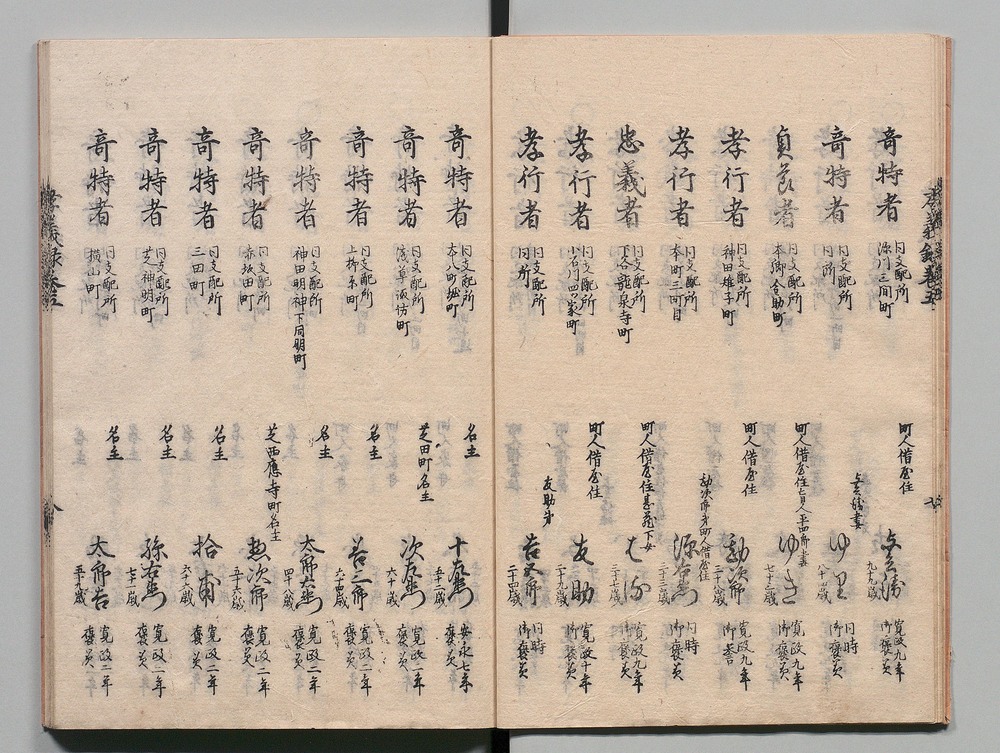 奇特者 同支配所 深川三間町 町人借屋住 九十九歳 寛政九年 御褒美
奇特者 同支配所 同所 ゆり 八十一歳 同時 御褒美
貞節者 同支配所 本郷金助町 町人借屋住 ゆき 七十三歳 寛政九年 御褒美
孝行者 同支配所 神田雉子町 町人借屋住 勘次郎 三十八歳 寛政九年 御誉
孝行者 同支配所 本町三間目 勘次郎弟町人借屋住 源右衛門 三十三歳 同時 御褒美
忠義者 同支配所 下谷龍泉寺町 町人借屋住甚蔵下女 三十九歳 寛政九年 御褒美
孝行者 同支配所 小石川四家町 町人借屋住 友助 二十九歳 寛政十年 御褒美
孝行者 同支配所 同所 友助弟 吉五郎 二十四歳 同時 御褒美
奇特者 同支配所 本八町堀町 名主 十右衛門 五十一歳 安永七年 褒美
奇特者 同支配所 浅草諏訪町 芝田町名主 次左衛門 六十歳 寛政二年 褒美
奇特者 同支配所 上柳原町 名主 善三郎 六十四歳 寛政二年 褒美
奇特者 同支配所 神田明神下同朋町 名主 太郎右衛門 四十八歳 寛政二年 褒美
奇特者 同支配所 赤坂田町 芝西應寺町名主 惣次郎 五十六歳 寛政二年 褒美
奇特者 同支配所 三田町 名主 拾甫 六十六歳 寛政二年 褒美
奇特者 同支配所 芝神明町 名主 弥右衛門 七十一歳 寛政二年 褒美
奇特者 同支配所 横山町 名主 太郎吉 五十九歳 寛政二年 褒美